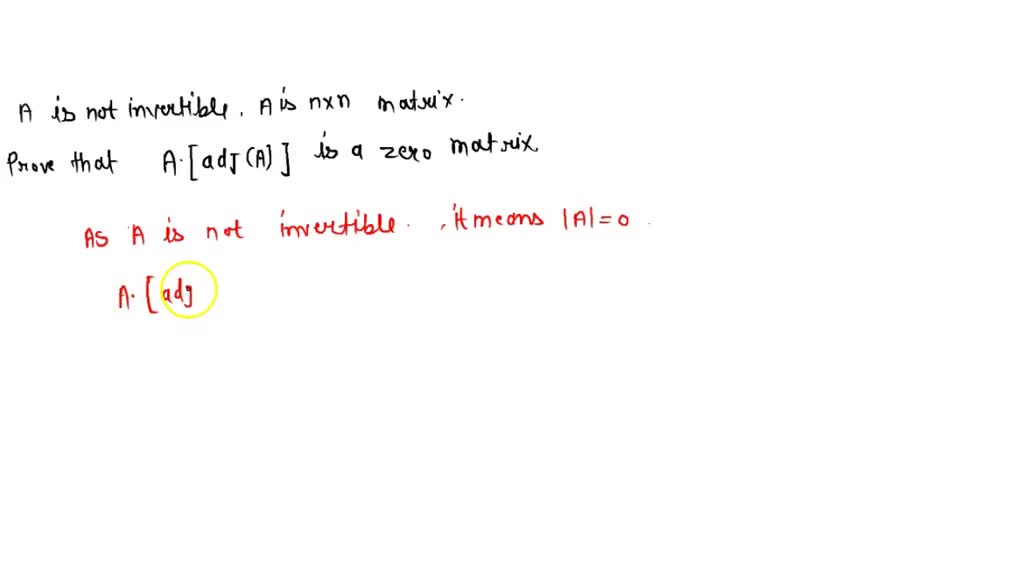 A is not invertible. A is nxn matrix.
Prove that A·[adj(A)] is a zero matrix
As A is not invertible. , it means |A|=0.
A·[adj